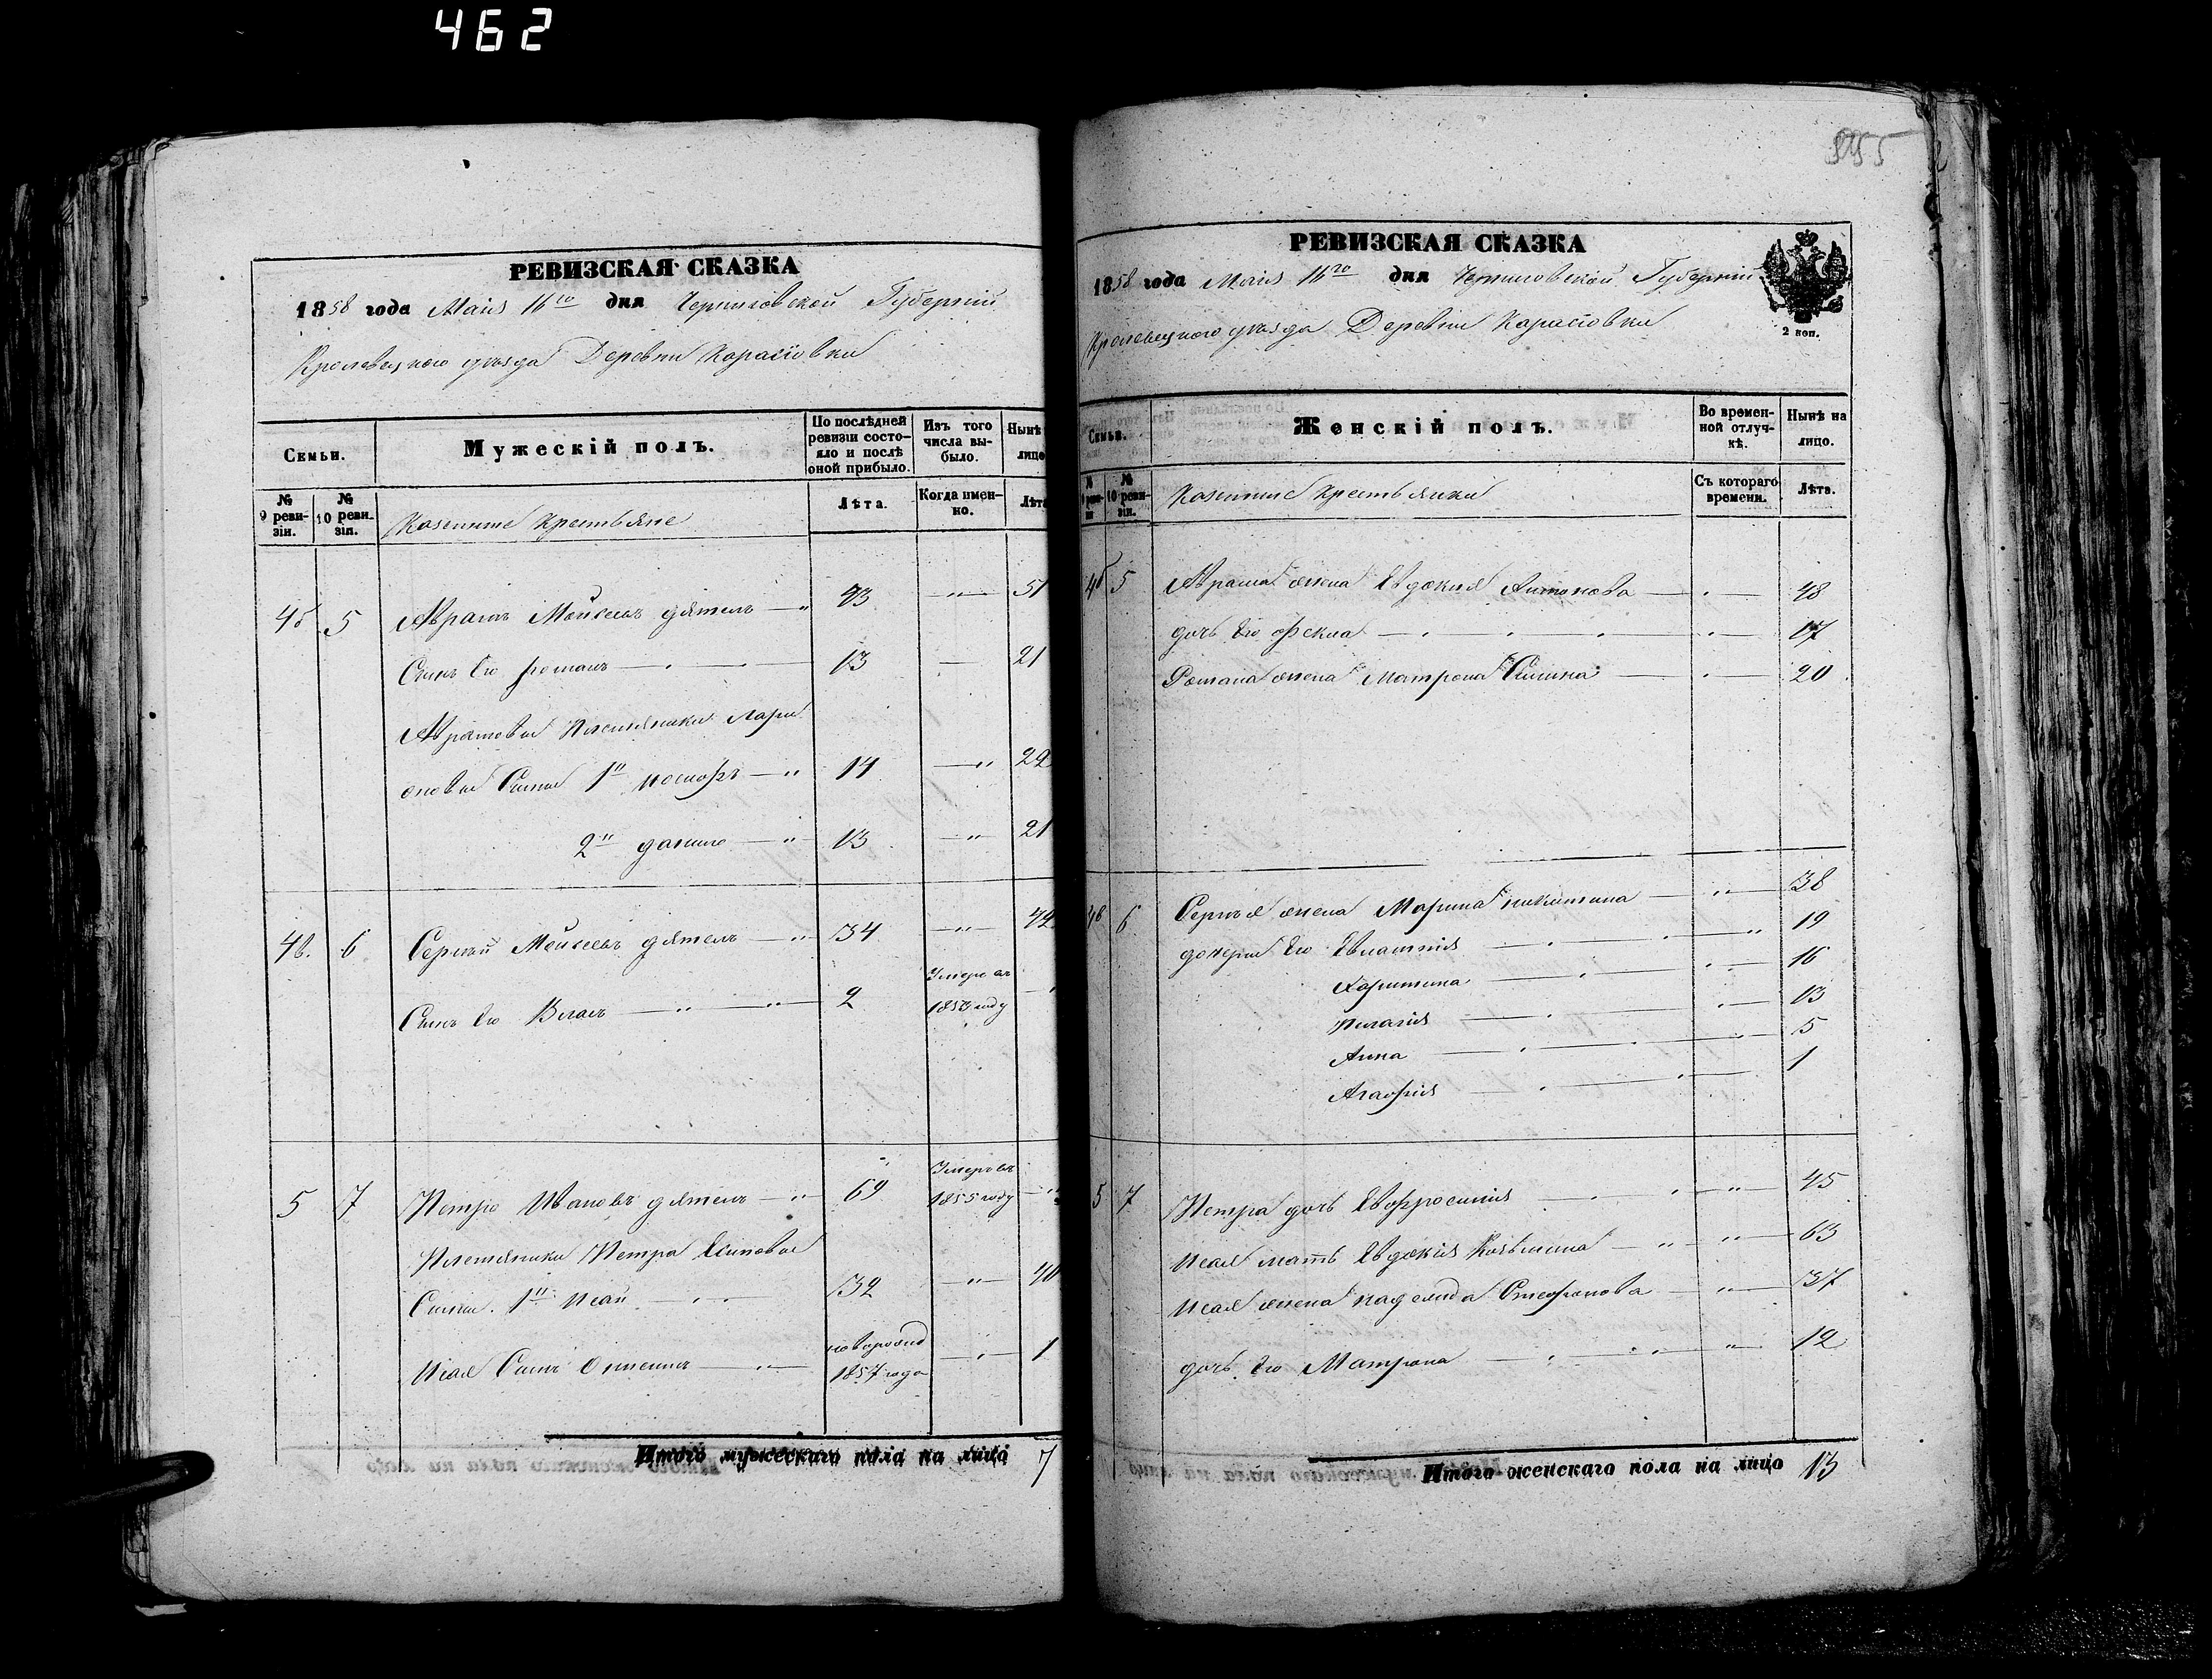 462
РЕВИЗСКАЯ СКАЗКА
1858 года Маія 16го дня Черниговской Губерніи
Кролевецкого уѣзда Деревни Карасіовки
Семьи.
Мужескій полъ.
По послѣдней ревизіи состояло и послѣ оной прибыло.
Изъ того числа выбыло.
Нынѣ
лицо
№ 9 ревизіи.
№ 10 ревизіи.
Козенные Крестьяне
Лѣта.
Когда именно.
Лѣта
4б 5 Абрамъ Мойсеевъ дятелъ 43 51
Сынъ Его романъ 13 21
Абрамовы Племяники Лари
оновы Сыны 1й 14 22
2й данило 13 21
4в. 6 Сергѣй Мойсеевъ дятелъ 34 42
Сынъ Его Власъ 2 Умеръ въ 1853 году
5 7 Петро Ивановъ дятелъ 69 Умеръ въ 1855 году
Племяники Петра
Сыны. 1й Исай 32 40
Исая Сынъ новорожд 1857 года 1
Итого мужескаго пола на лицо 7
РЕВИЗСКАЯ СКАЗКА
1858 года Маія 16го дня Черниговской Губерніи
2 коп.
Кролевецкого уѣзда Деревни Карасіовки
Семьи.
Женскій полъ.
Во временной отлучкѣ.
Нынѣ на лицо.
№ 9 ревизіи
№ 10 ревизіи.
Козенные Крестьянки
Съ котораго времени.
Лѣта.
4б 5 Абрама жена Евдокия Антонова 48
дочь Его Фекла 17
Романа жена Матрона 20
4в 6 Сергѣя жена Марина никитина 38
дочери Его Евлампія 19
Харитина 16
Пилагія 13
Анна 5
Агафія 1
5 7 Петра дочь Евфросинія 45
Исая мать Евдокія Козьмина 63
Исая жена надежда Стефанова 37
дочь Его Матрона 12
Итого женскаго пола на лицо 13